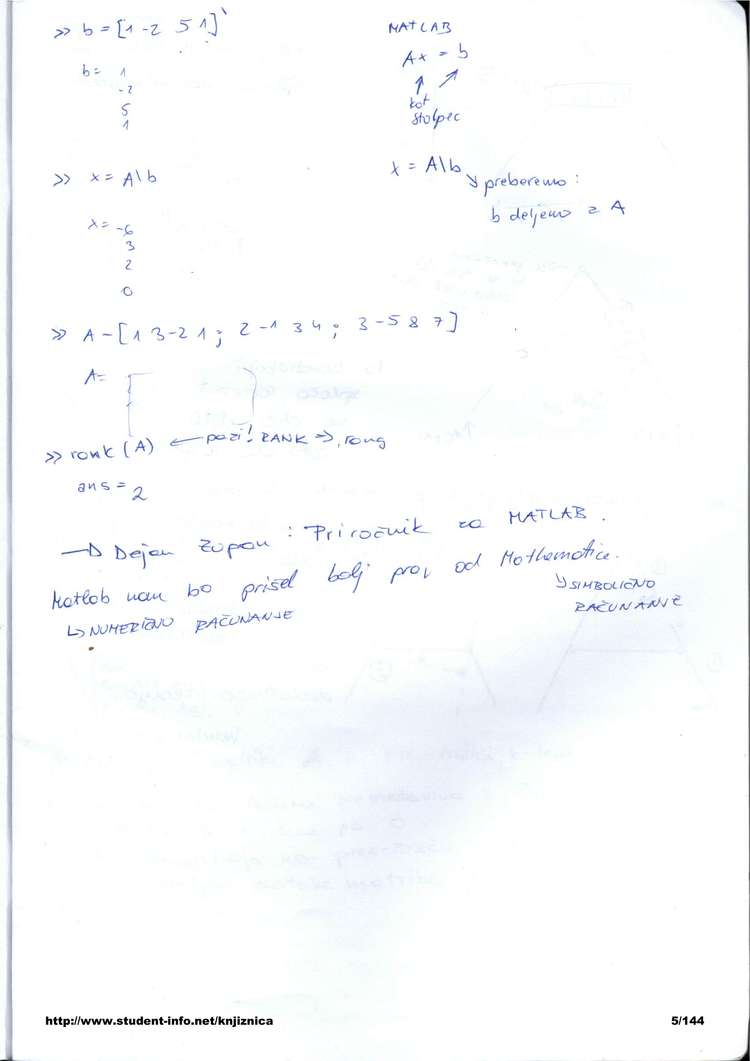 >> b = [1 -2 5 1]'
b = 1
-2
5
1
MATLAB
Ax = b
kot
stolpec
>> x = A\b
x = -6
3
2
0
x = A\b
preberemo :
b deljeno z A
>> A - [1 3 -2 1 ; 2 -1 3 4 ; 3 -5 8 7]
A =
>> rank (A) ← pazi! RANK ⇒ rang
ans = 2
→ Dejan Zupan : Priročnik za MATLAB .
Matlab nam bo prišel bolj prav od Mathematice.
↳ NUMERIČNO RAČUNANJE
↳ SIMBOLIČNO
RAČUNANJE
http://www.student-info.net/knjiznica
5/144